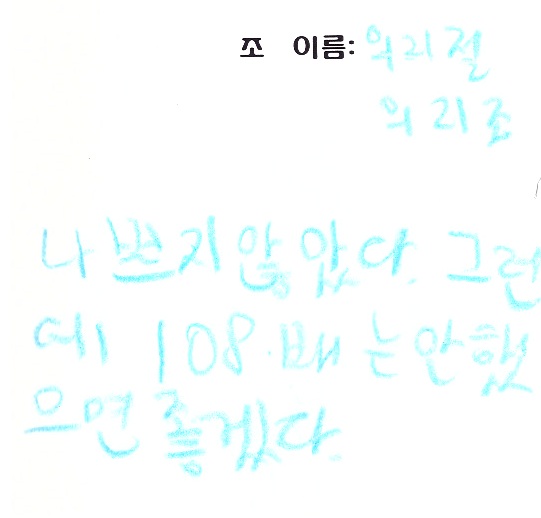 조 이름: 의리절
의리조
나쁘지않았다. 그런
데 108배는안했
으면 좋겠다.